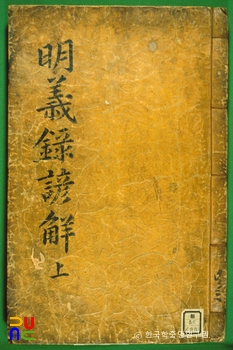 明義錄諺解 上
© 한국학중앙연구원